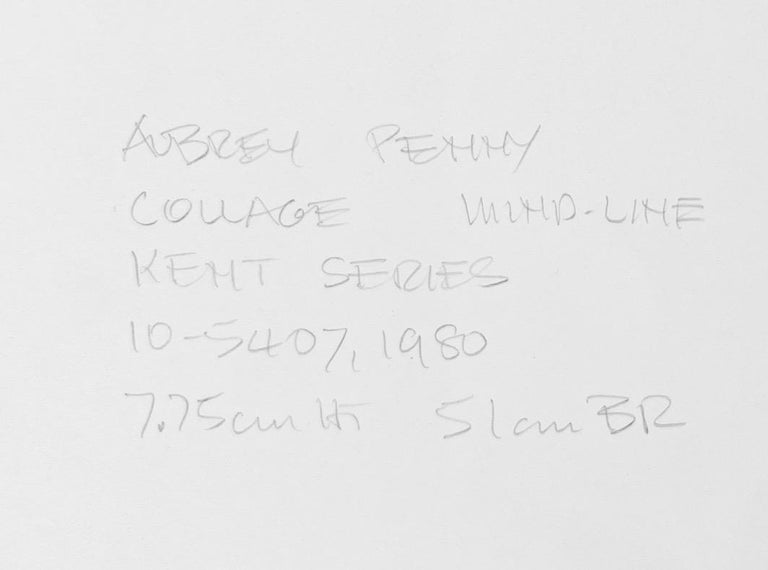 AUBREY PENNY
COLLAGE WIND-LINE
KENT SERIES
10-5407, 1980
7.75cm Hi 51cm BR